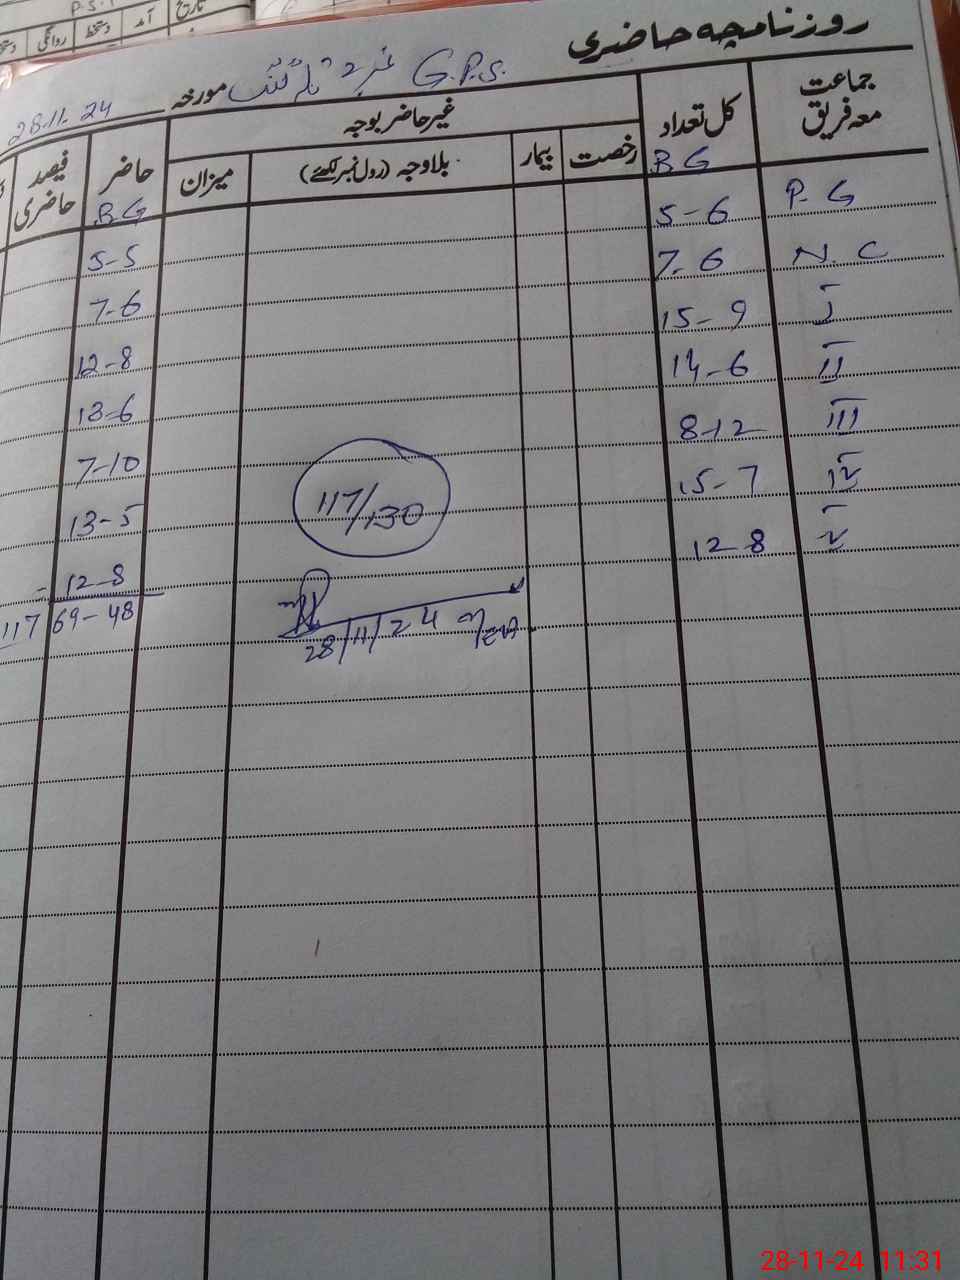 P.S.
تاریخ آمد دستخط روانگی
روزنامچہ حاضری
G.P.S. مورخہ 28.11.24
جماعت معہ فریق کل تعداد غیر حاضر بوجہ حاضر فیصد حاضری
رخصت بیمار بلاوجہ (رول نمبر لکھئے) میزان
B G B.G
P.G 5-6 5-5
N.C 7-6 7-6
I 15-9 12-8
II 14-6 13-6
III 8-12 7-10
IV 15-7 13-5
V 12-8 12-8
69-48 117
117/130
28/11/24
28-11-24 11:31